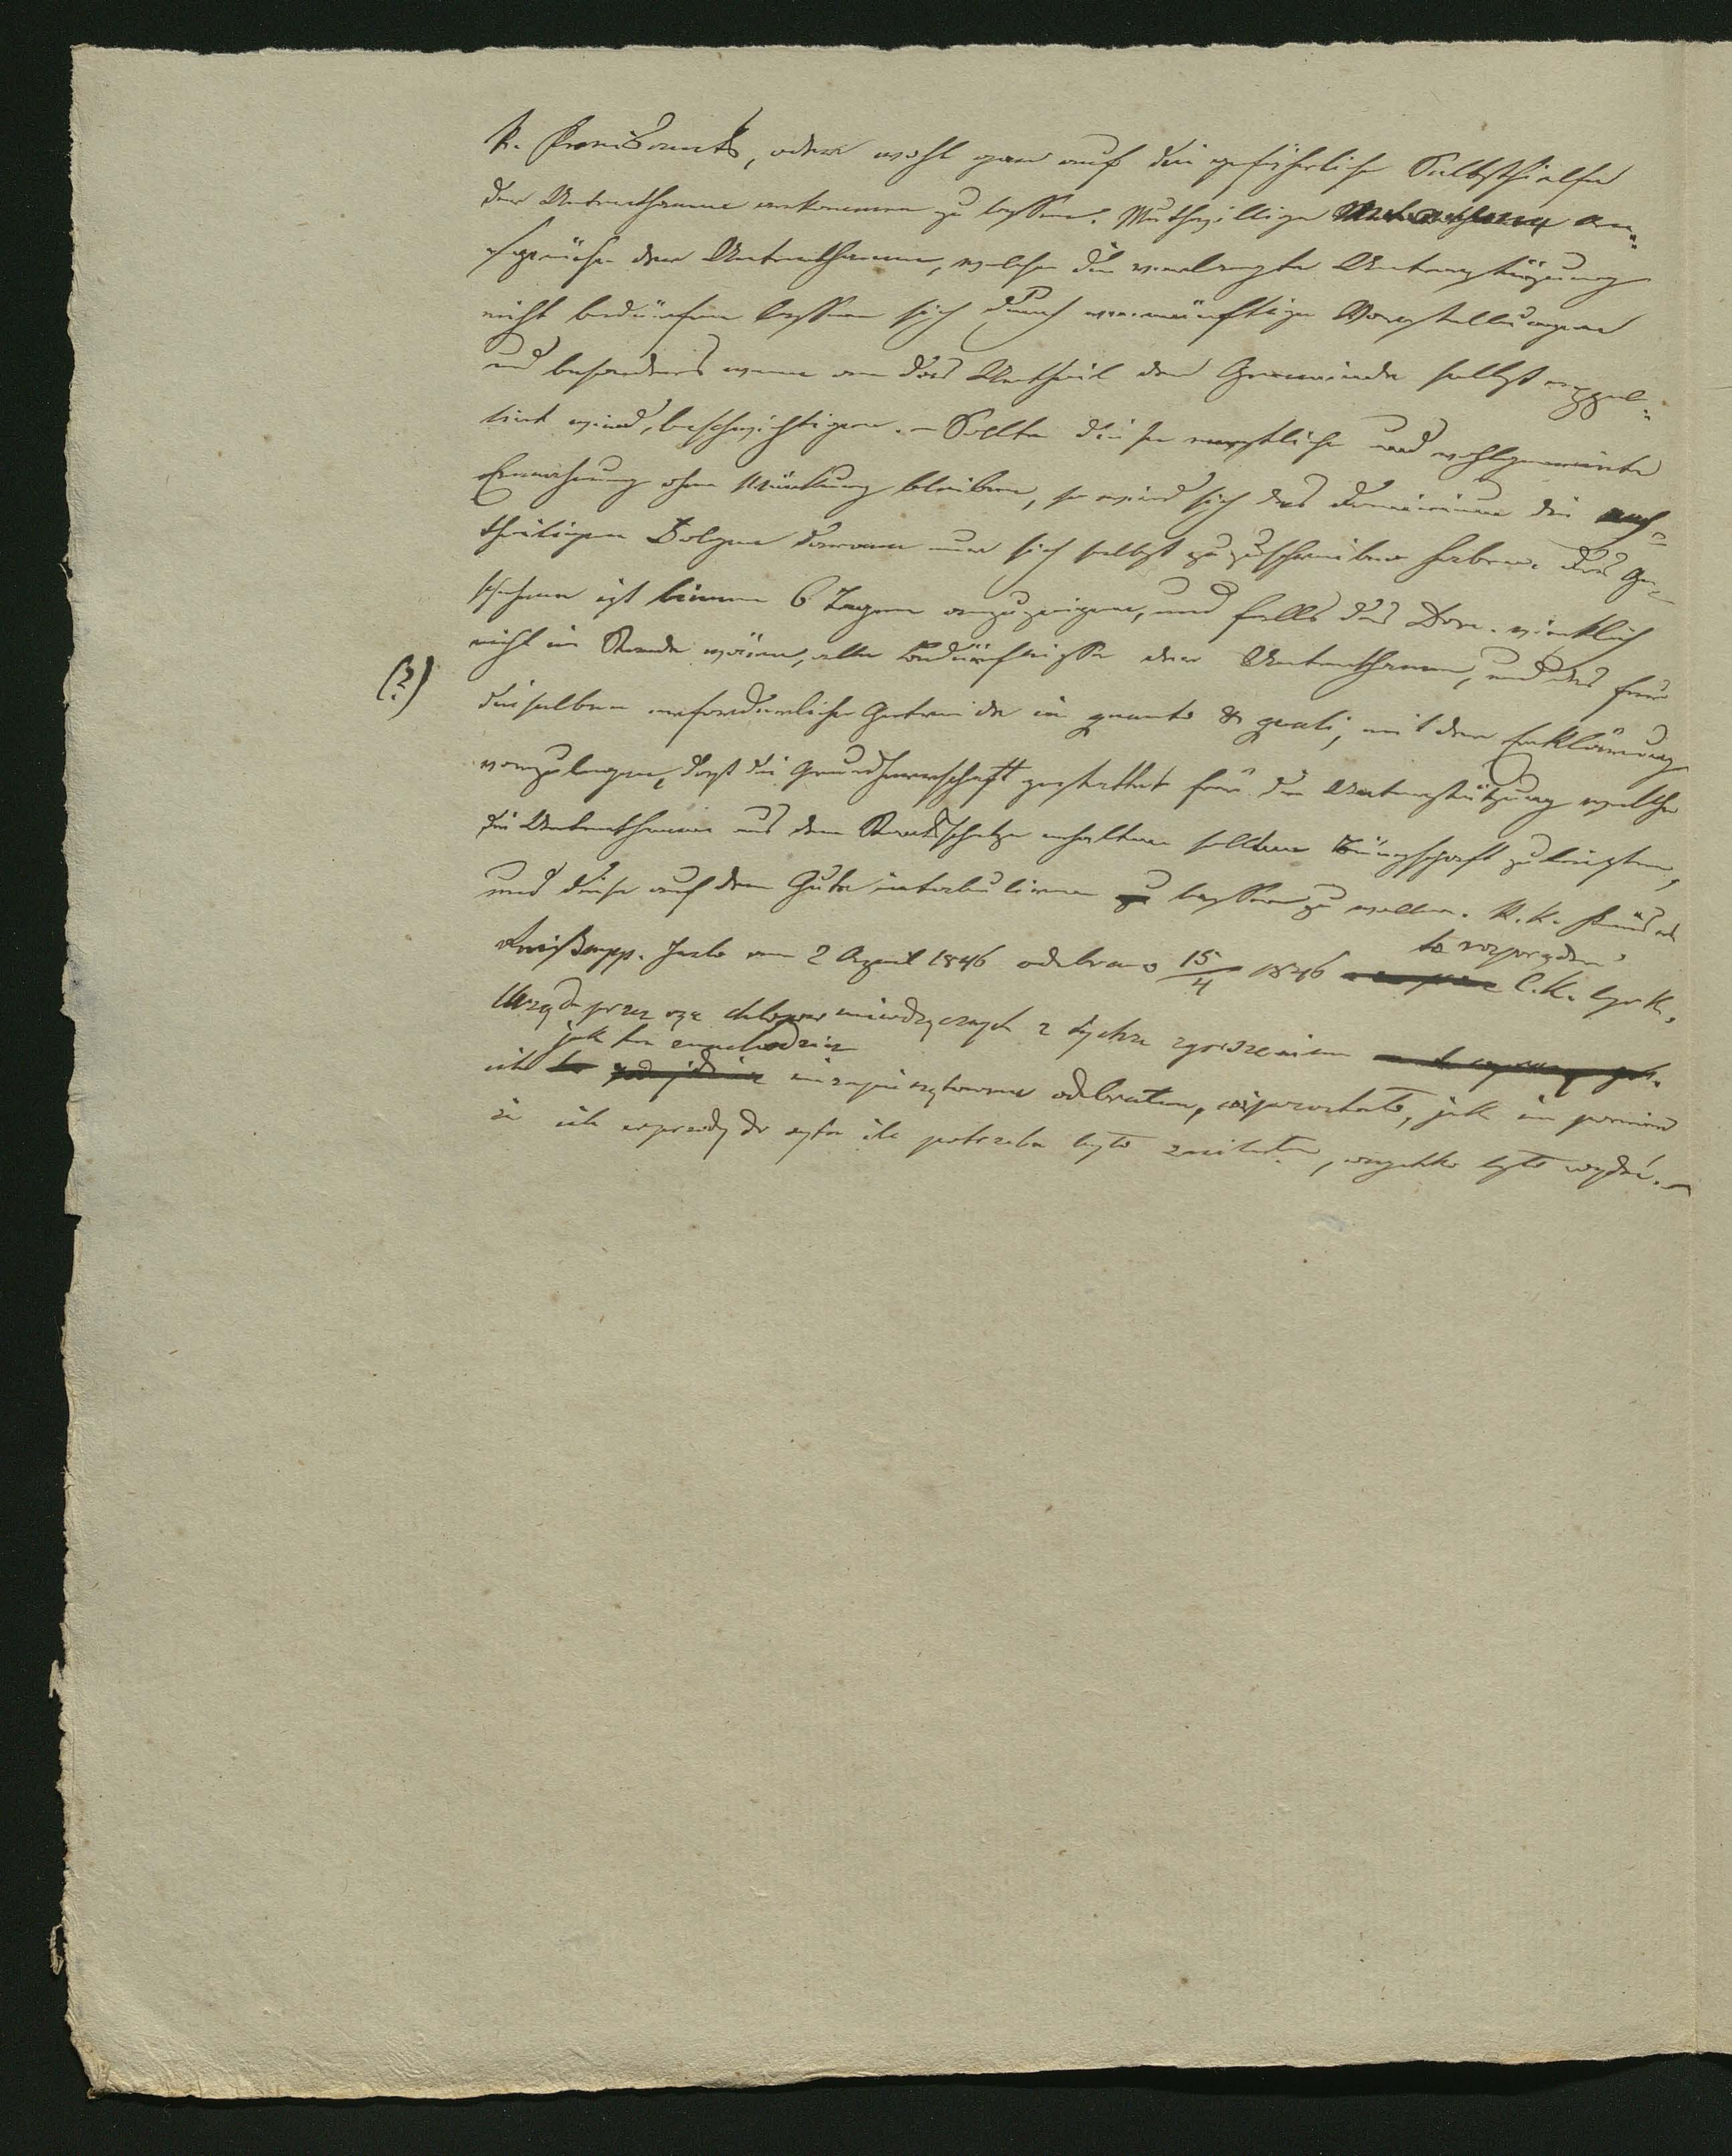 k. Kreisamts, oder wohl gar auf die gefährliche Selbsthielfe
der Unterthanen ankommen zu lassen. Muthwillige An-
sprüche der Unterthanen, welche die verlangte Unterstüzung
nicht bedürfen lassen sich durch vernünftige Vorstellungen
und besonders wenn an das Urtheil der Gemeinde selbst appel-
lirt wird, beschwichtigen. – Sollte diese ernstliche und wohlgemeinte
Ermahnung ohne Würkung bleiben, so wird sich das Dominium die nach-
theiligen Folgen davon nur sich selbst zuzuschreiben haben. Das Ge-
schehene ist binnen 6 Tagen anzuzeigen, und falls das Dom. wirklich
nicht im Stande wäre, alle Bedürfnisse der Unterthanen, und das für
(?)
dieselben erforderliche Getreide in quanto & quali, mit der Erklärung
vorzulegen, daß die Grundherrschaft gestattet für die Unterstützung welche
die Unterthanen aus dem Staatsschatze erhalten sollten Bürgschaft zu leisten,
und diese auf dem Gute intabuliren zu lassen zu wollen. K. k.
mpp. Jasło am 2 April 1846 odebrano 15/4 1846 to rozporządze. C. K. Cyrk.
Urzędu przez ręce chłopów z tychże zgorszeniem
jak to
ich odebrałem, jak im powin
ich wprzódy do syta ile potrzeba było , wszystko było wydać. –